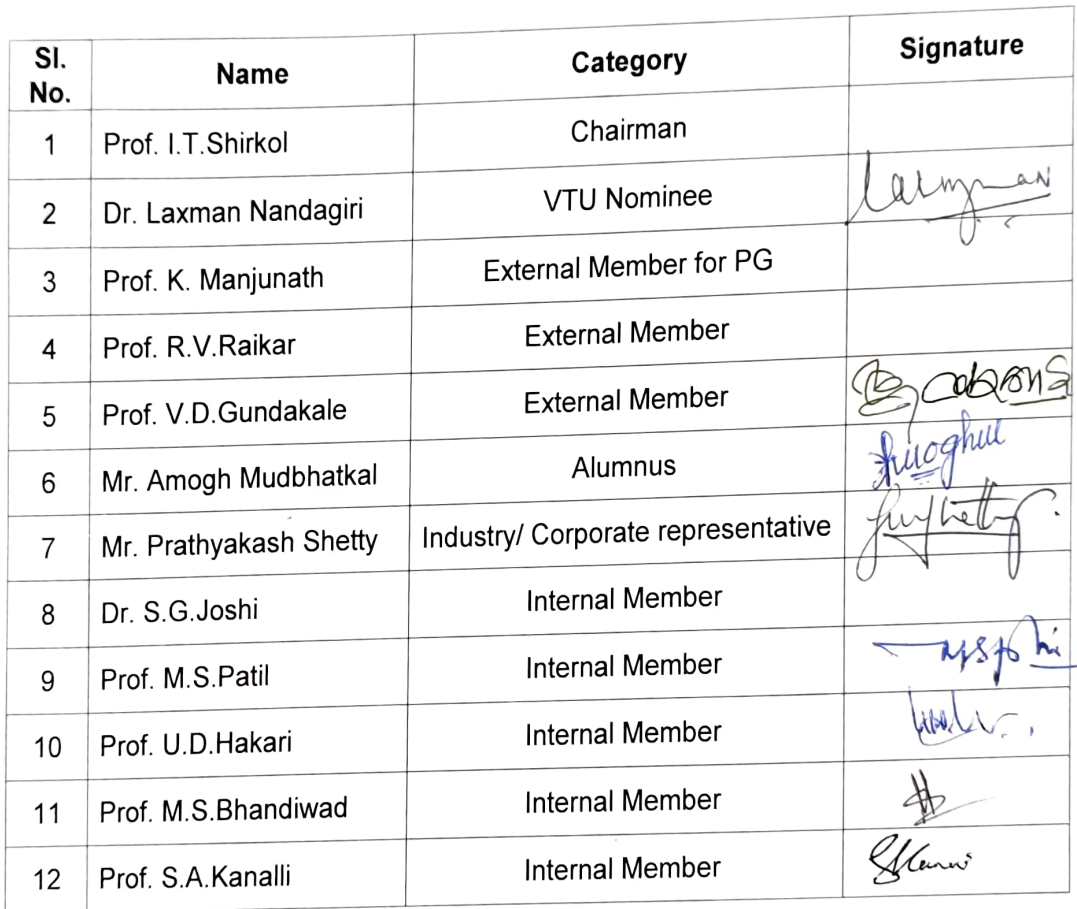 Sl. No. Name Category Signature
1 Prof. I.T.Shirkol Chairman
2 Dr. Laxman Nandagiri VTU Nominee Laxman
3 Prof. K. Manjunath External Member for PG
4 Prof. R.V.Raikar External Member
5 Prof. V.D.Gundakale External Member
6 Mr. Amogh Mudbhatkal Alumnus
7 Mr. Prathyakash Shetty Industry/ Corporate representative
8 Dr. S.G.Joshi Internal Member
9 Prof. M.S.Patil Internal Member
10 Prof. U.D.Hakari Internal Member
11 Prof. M.S.Bhandiwad Internal Member
12 Prof. S.A.Kanalli Internal Member